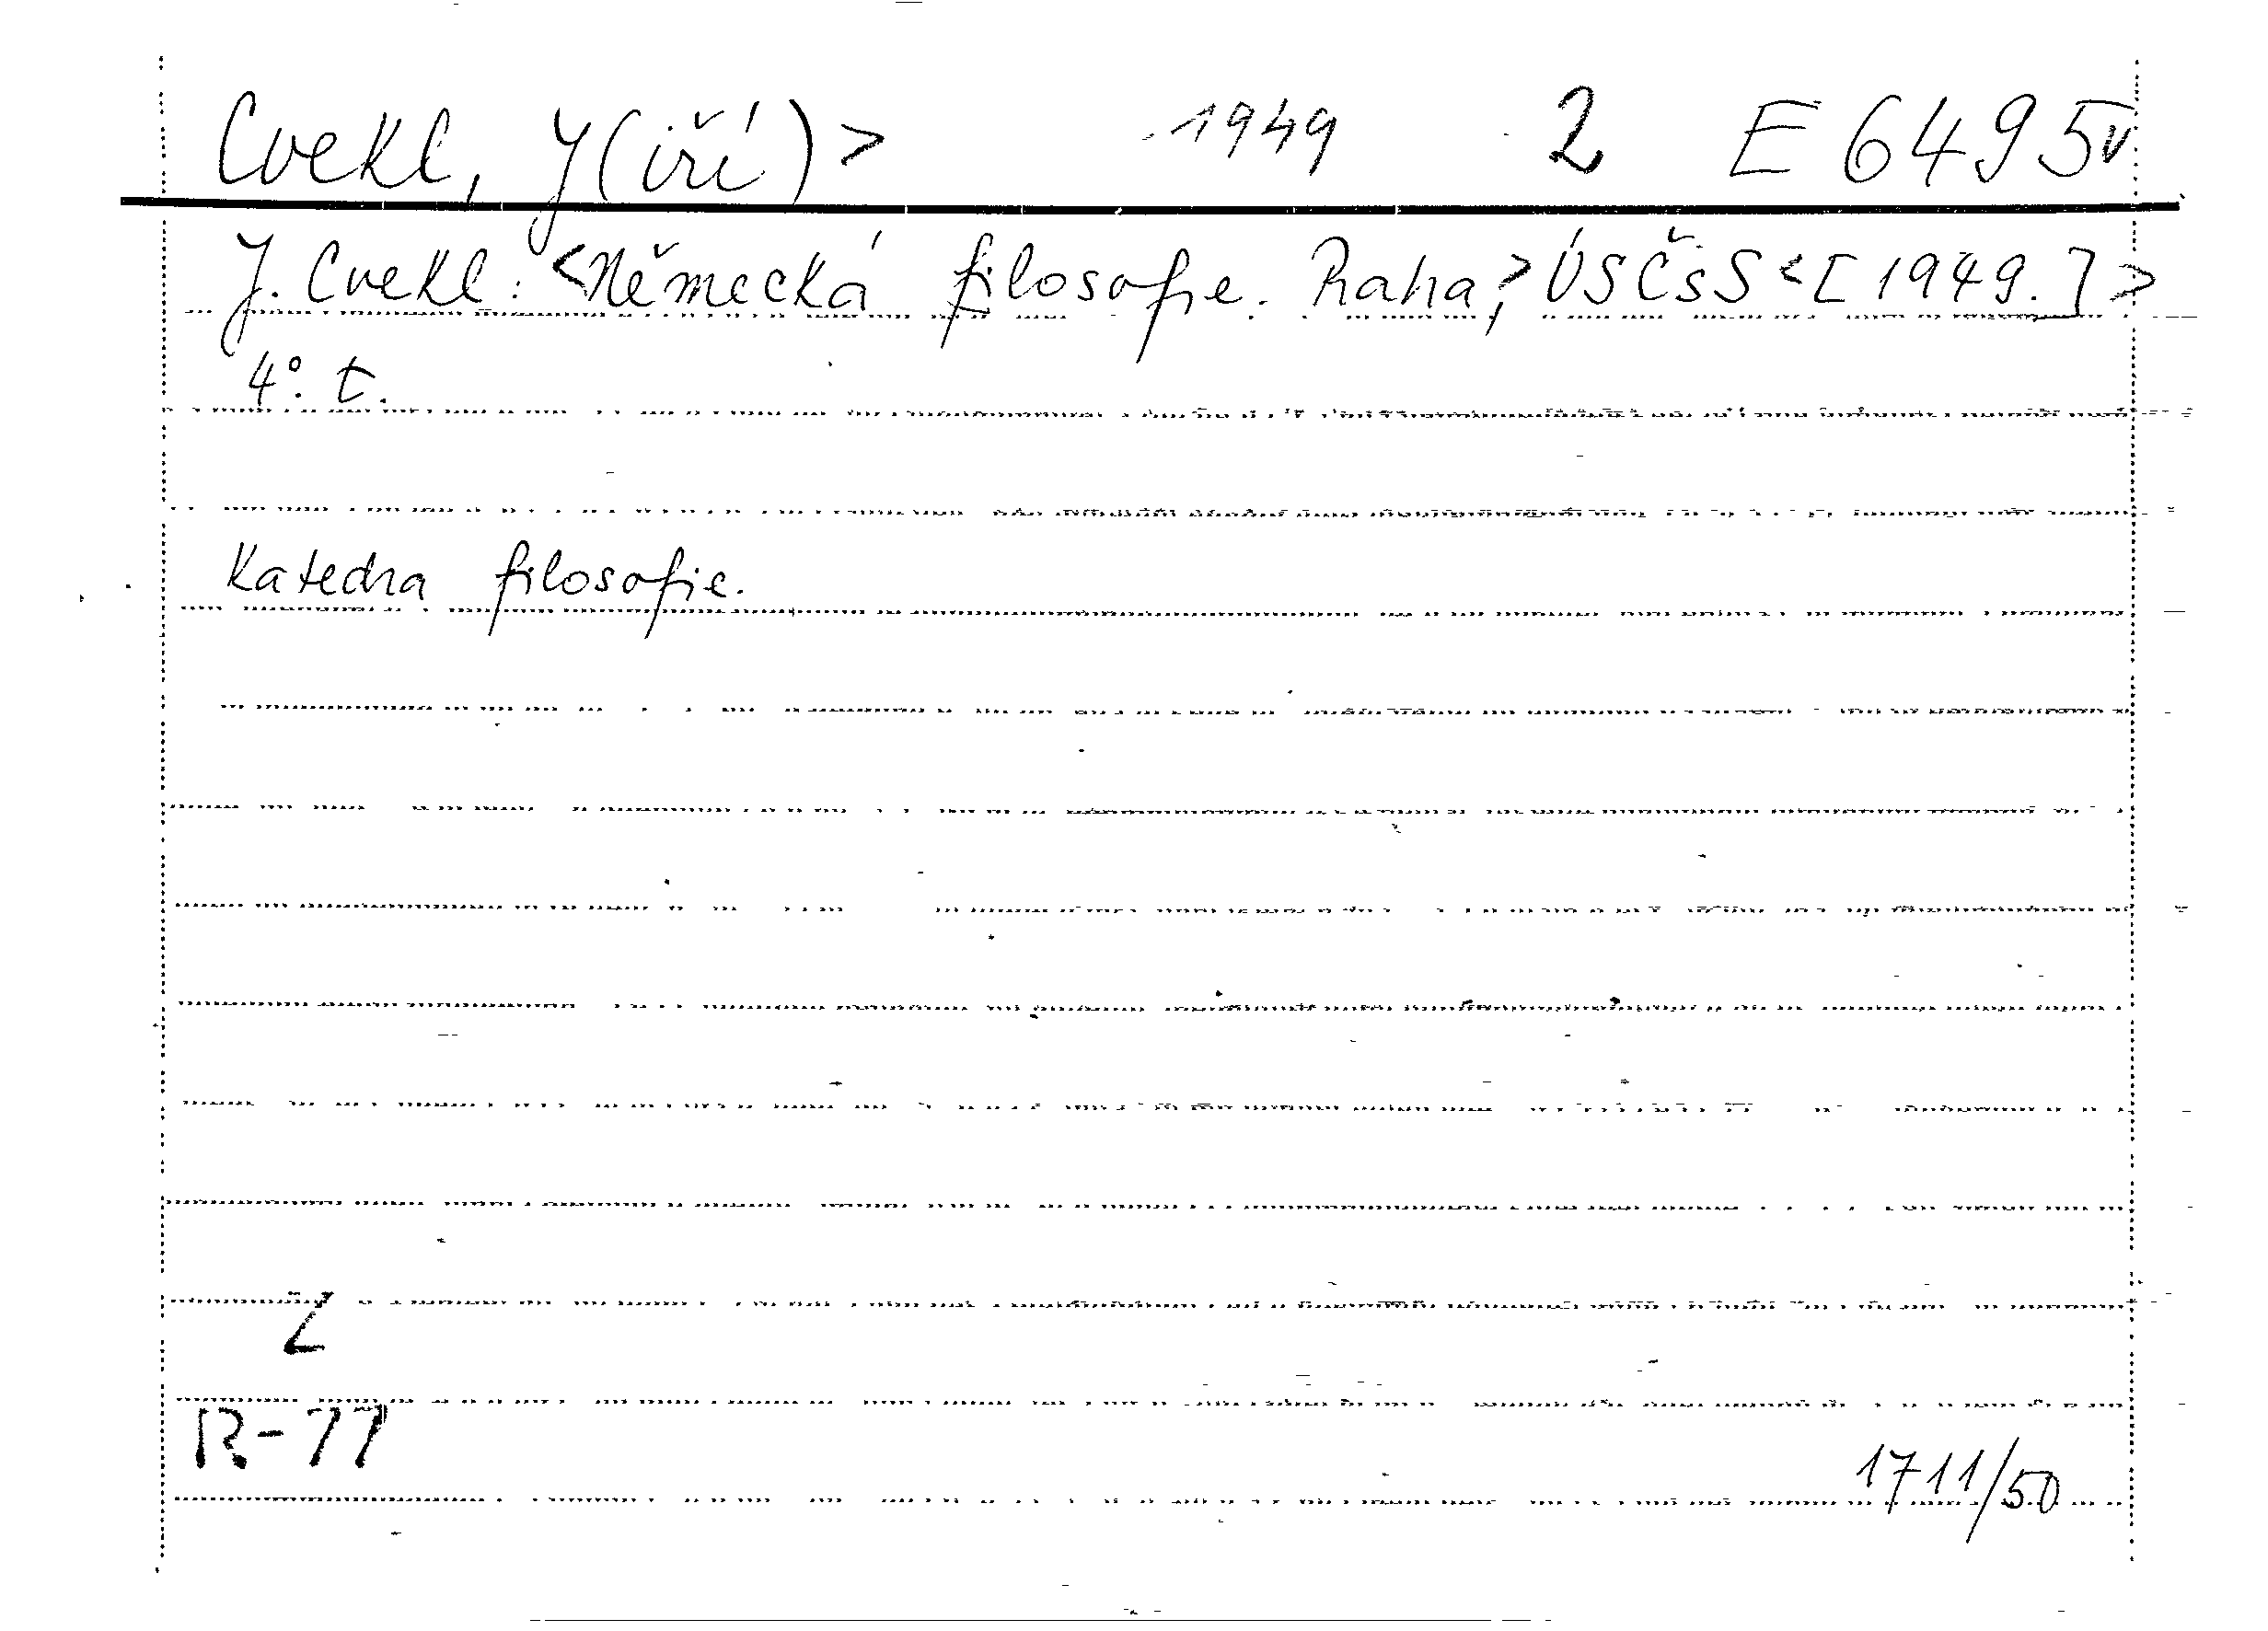 Cvekl, J(iří) > 1949 2 E 6495 v
J. Cvekl: <Německá filosofie. Praha,> ÚSČsS <[1949.]>
4°. t.
Katedra filosofie.
Z
R-77
1711/50